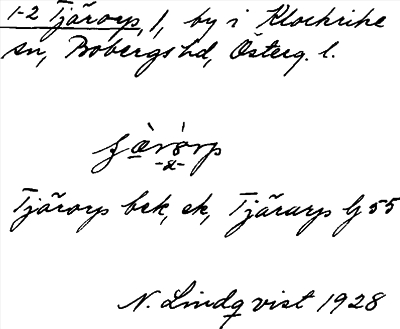 1-2 Tjärorp, /, by i Klockrike
sn, Bobergs hd, Österg. l.
Tjärorp bek, ek, Tjärarp Gj 55
N. Lindqvist 1928